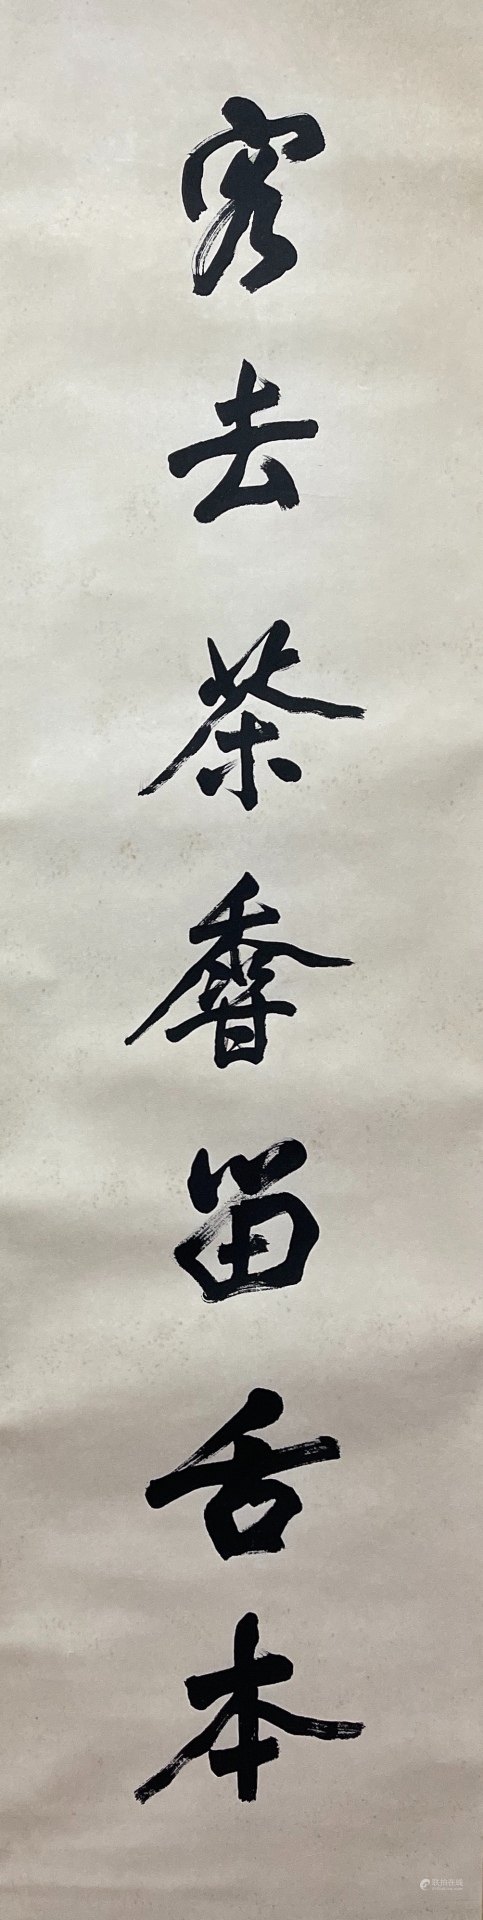 客去茶香留舌本
联拍在线